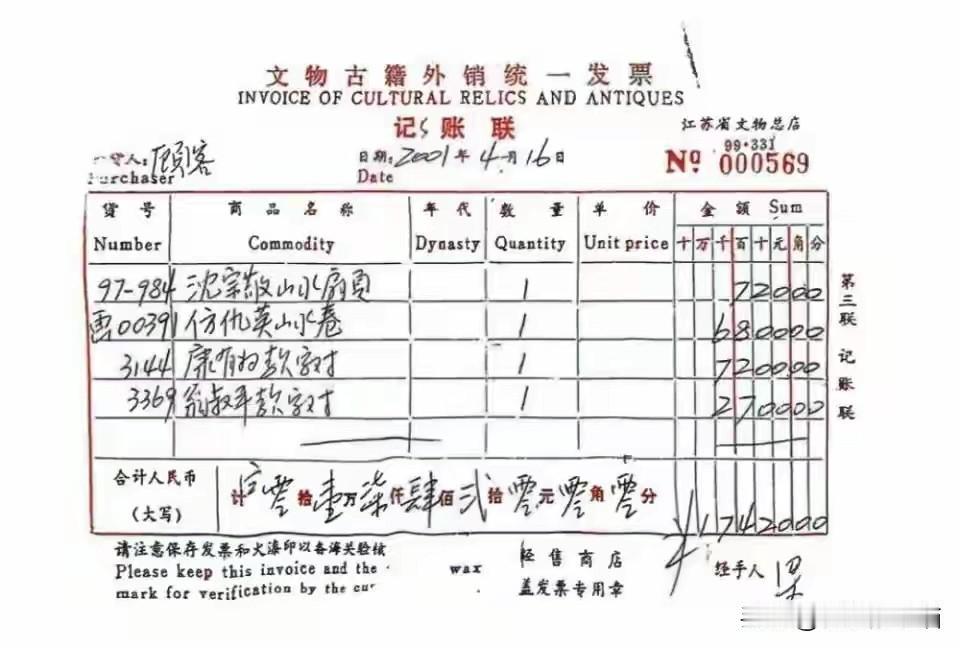 文物古籍外销统一发票
INVOICE OF CULTURAL RELICS AND ANTIQUES
记账联
江苏省文物总店
99·331
货人: 顾客
日期: 2001年4月16日
Nº 000569
Purchaser
Date
货号 商品名称 年代 数量 单价 金额 Sum
Number Commodity Dynasty Quantity Unit price 十万千百十元角分
97-984 沈宗敬山水扇页 1 72000
雷00391 仿仇英山水卷 1 680000
3144 康有为款字对 1 720000
3369 翁叔平款字对 1 270000
合计人民币
(大写)
计 零拾壹万柒仟肆佰贰拾零元零角零分 ¥1742000
第三联 记账联
请注意保存发票和火漆印以备海关验核
Please keep this invoice and the wax
mark for verification by the cur
经售商店
盖发票专用章
经手人